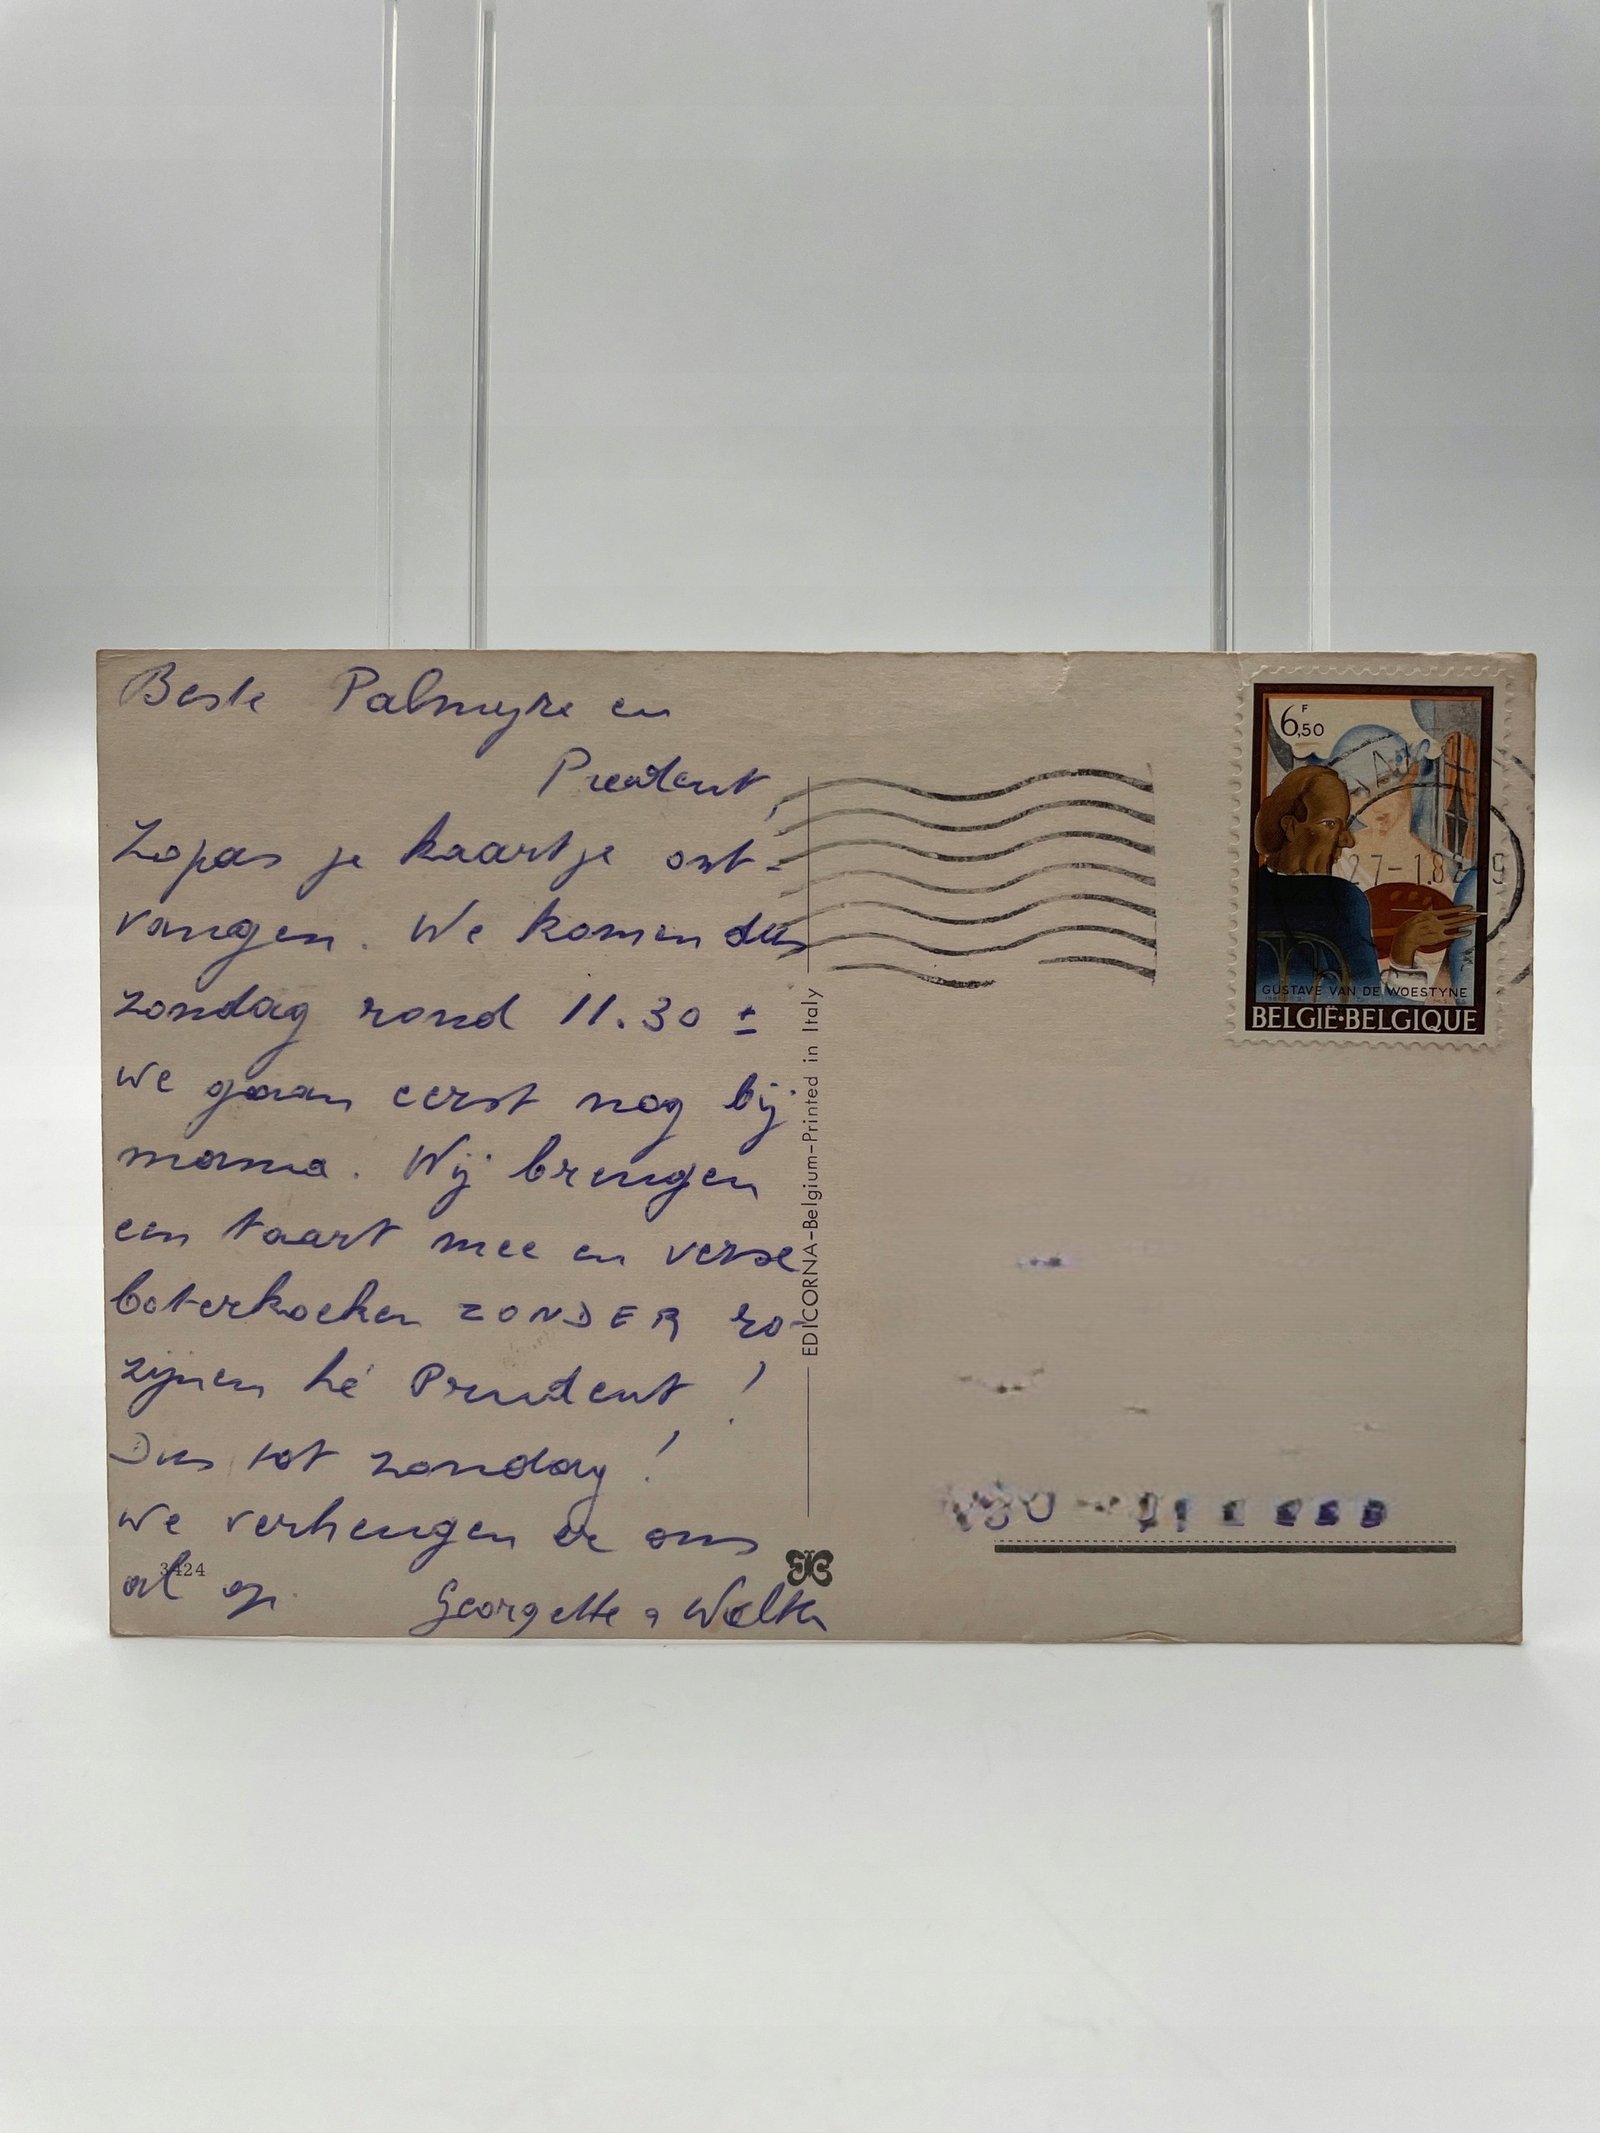 Beste Palmyre en
Prudent,
Zopas je kaartje ont-
vangen. We komen dus
zondag rond 11.30 ±
we gaan eerst nog bij
mama. Wij brengen
een taart mee en verse
boterkoeken ZONDER ro-
zijnen hé Prudent !
Dus tot zondag !
We verheugen er ons
al op.
Georgette & Walter
3424
EDICORNA-Belgium-Printed in Italy
6F,50
27-1.82
GUSTAVE VAN DE WOESTYNE
BELGIË·BELGIQUE